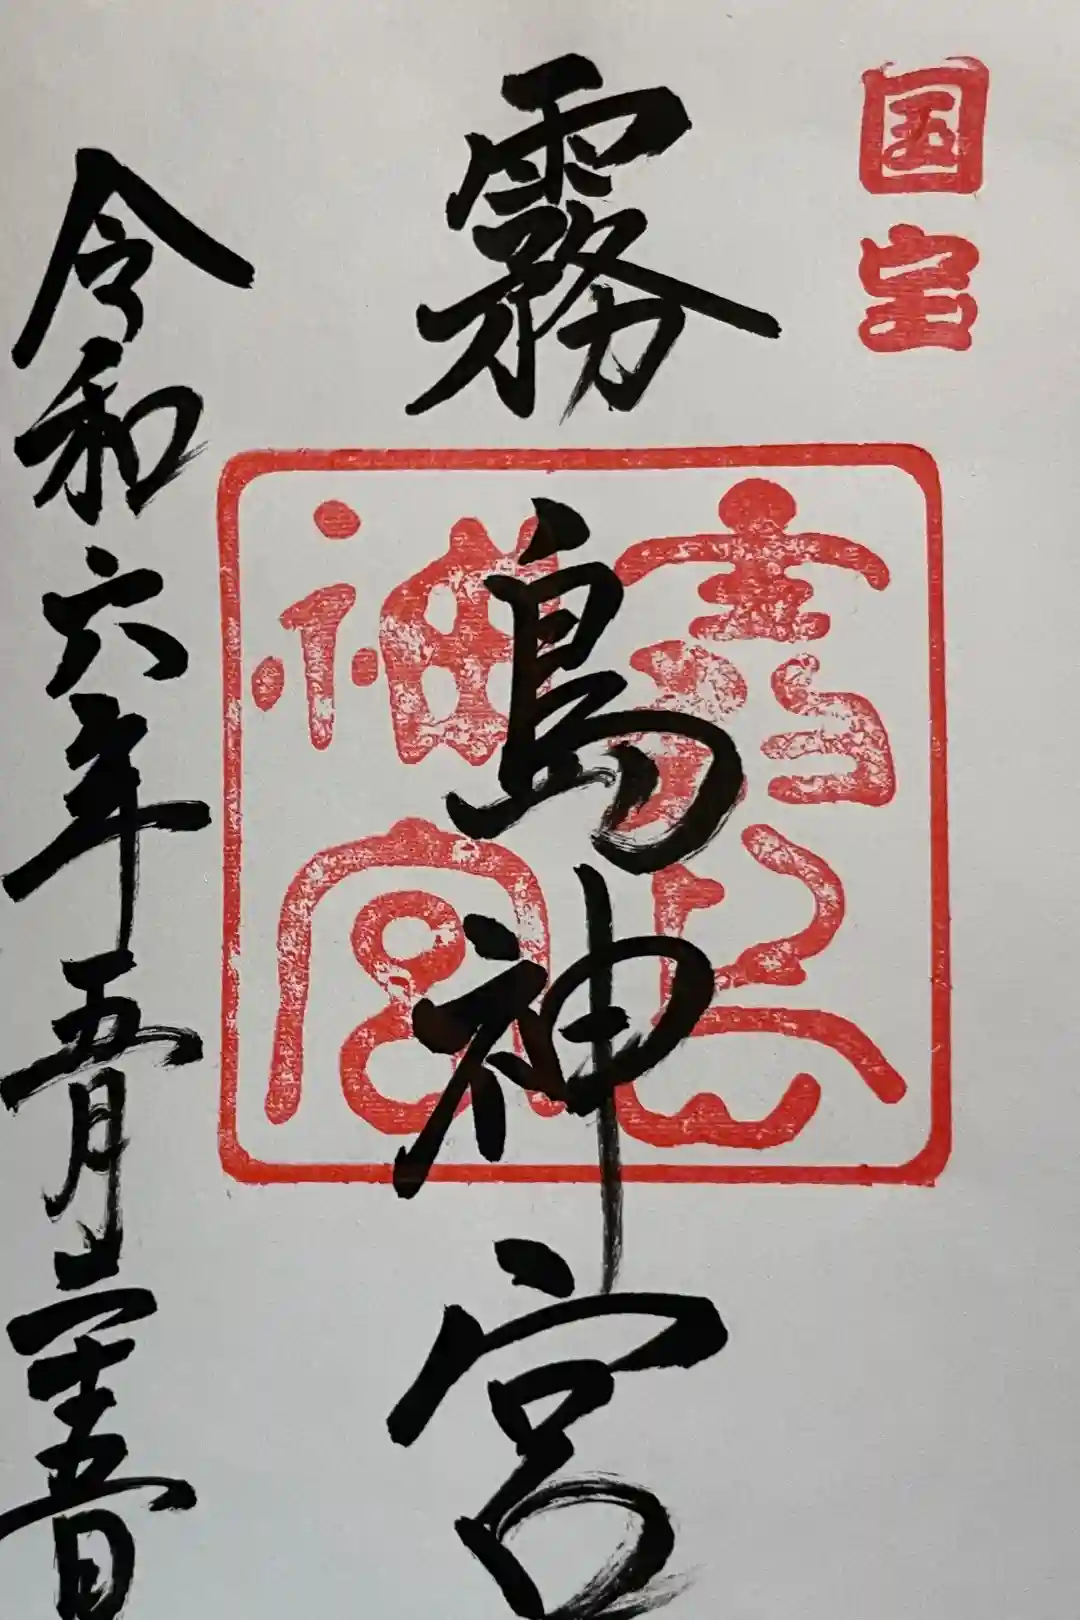 国宝
霧島神宮
霧島神宮
令和六年五月二十五日